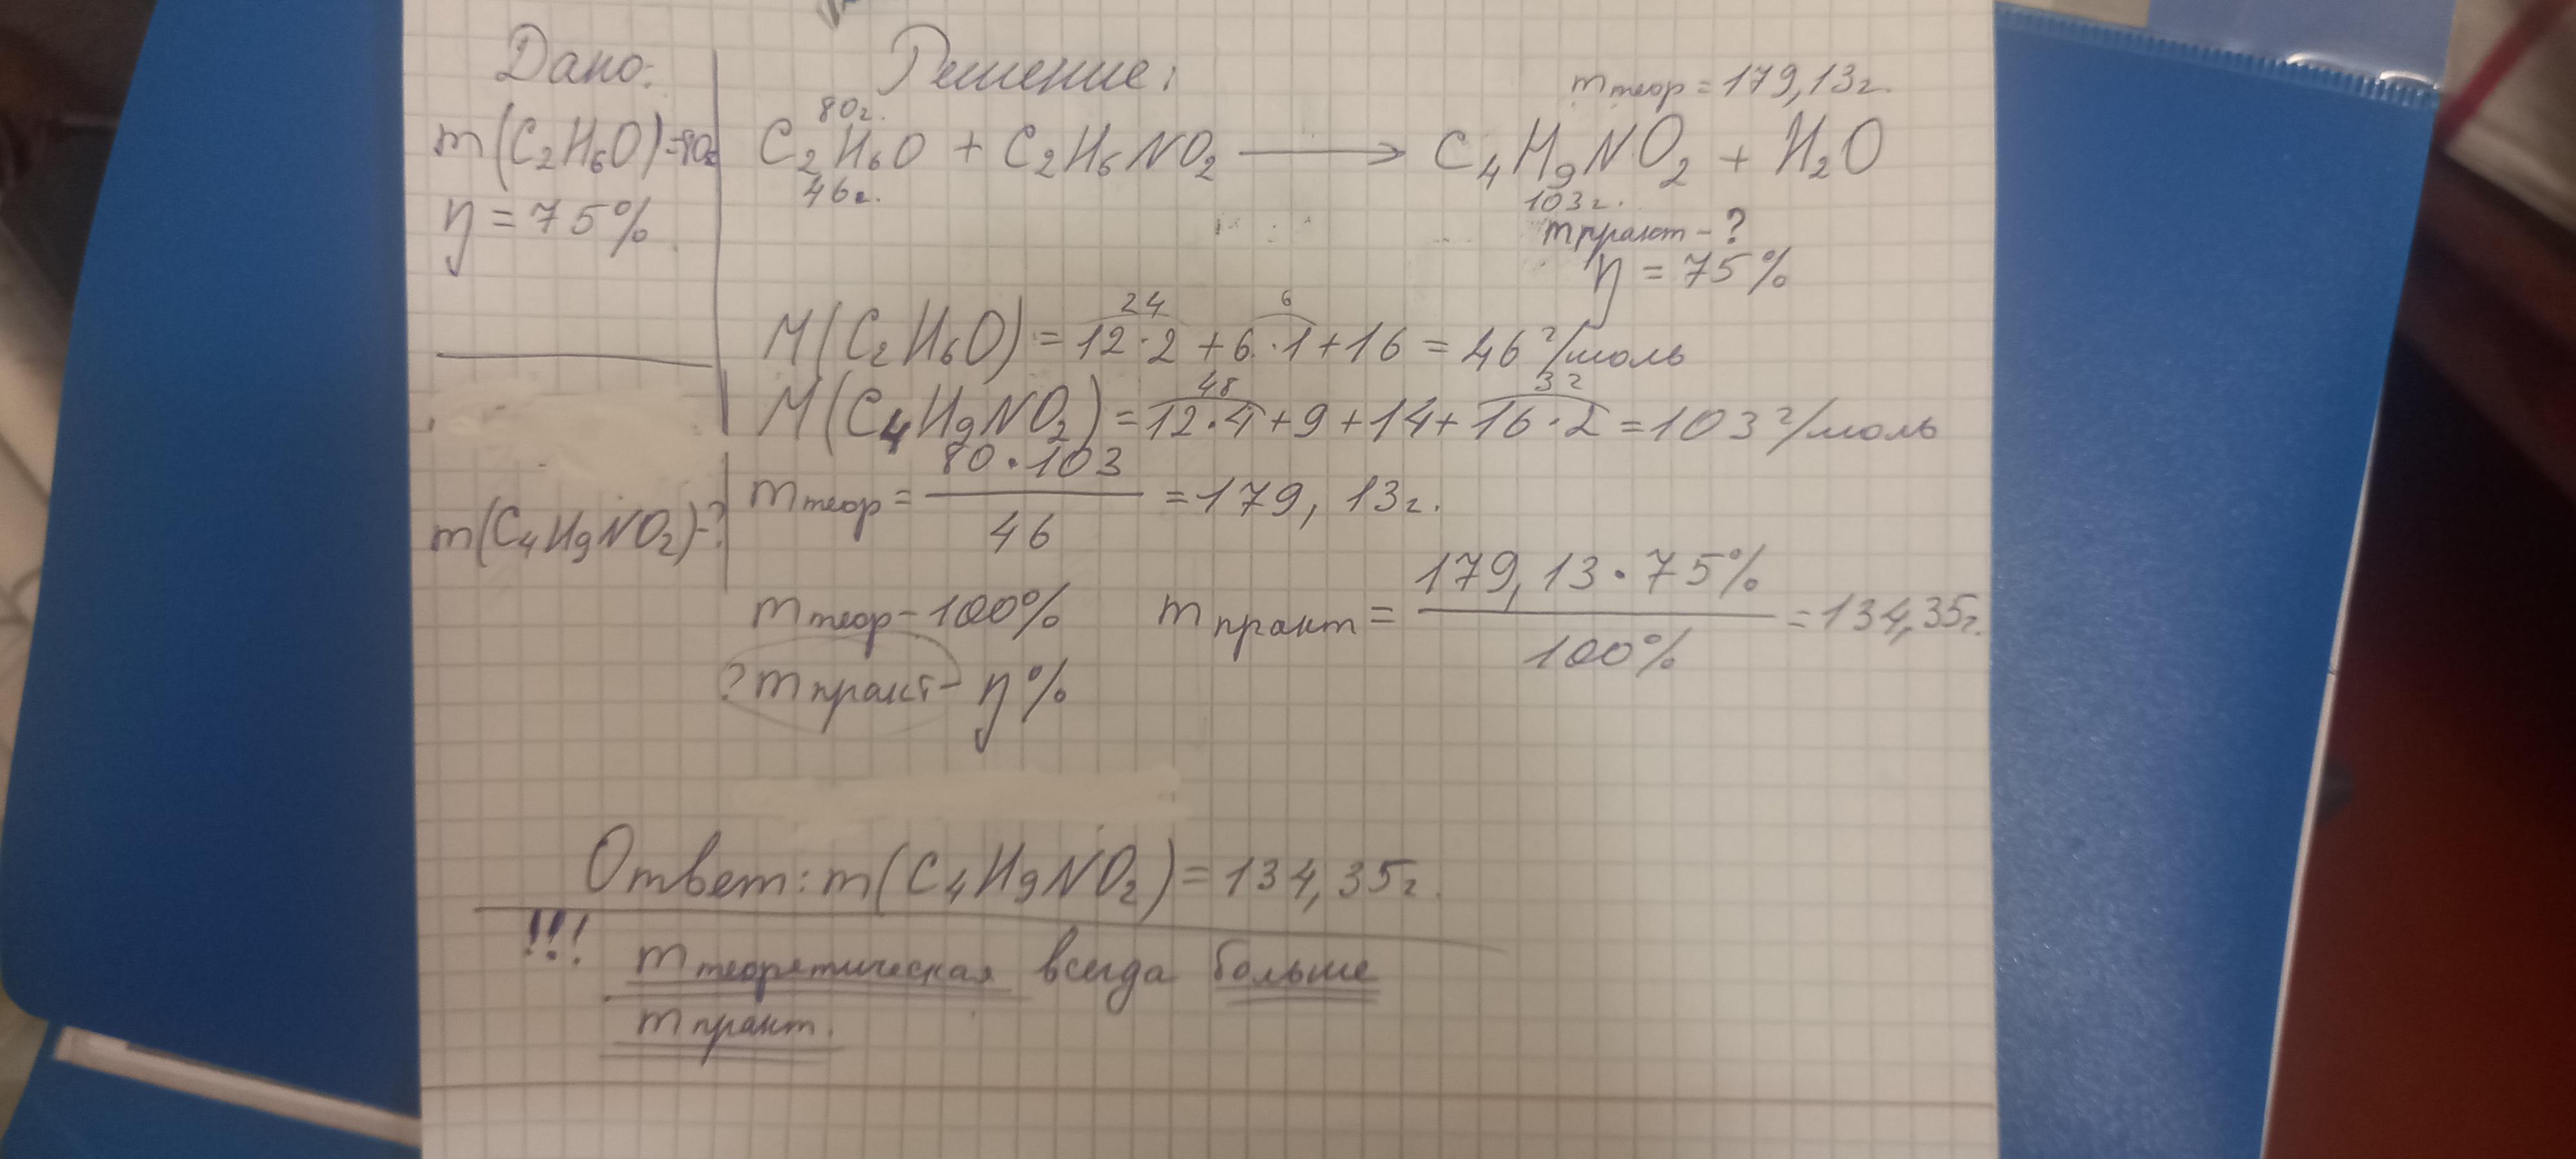 Дано:
m(C₂H₆O)=80г
η = 75%
m(C₄H₉NO₂)-?
Решение:
mтеор = 179,13г.
80г.
C₂H₆O + C₂H₅NO₂ ⟶ C₄H₉NO₂ + H₂O
46г.
103г.
mпракт - ?
η = 75%
24 6
M(C₂H₆O) = 12·2 + 6·1 + 16 = 46 г/моль
48 32
M(C₄H₉NO₂) = 12·4 + 9 + 14 + 16·2 = 103 г/моль
80·103
mтеор = ——— = 179,13г.
46
mтеор - 100%
? mпракт - η%
179,13·75%
mпракт = ——— = 134,35г.
100%
Ответ: m(C₄H₉NO₂) = 134,35г.
!!! mтеоретическая всегда больше
mпракт.